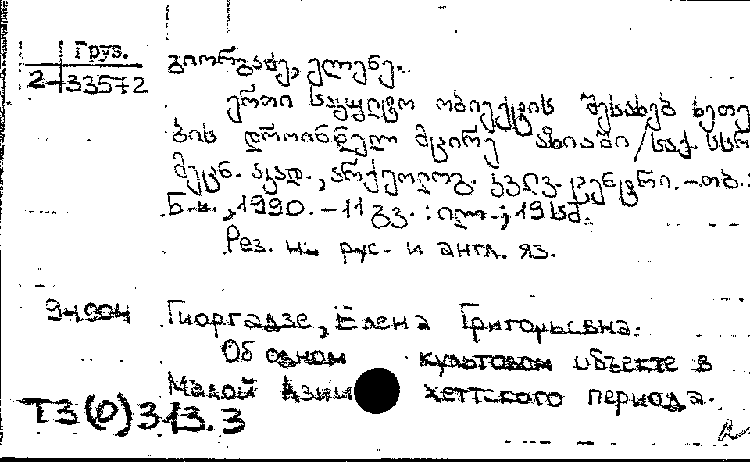 Груз.
2-33572
გიორგაძე, ელენე.
ერთი საკულტო ობიექტის შესახებ ხეთე
ბის დროინდელ მცირე აზიაში / საქ. სსრ
მეცნ. აკად., არქეოლოგ. კვლევ. ცენტრი. - თბ.:
Б.и., 1990. - 11 გვ. : ილ. ; 19 სმ.
Рез. на рус. и англ. яз.
Гиоргадзе, Елена Григорьевна.
Об одном культовом объекте в
Малой Азии хеттского периода.
Т3(0)313.3